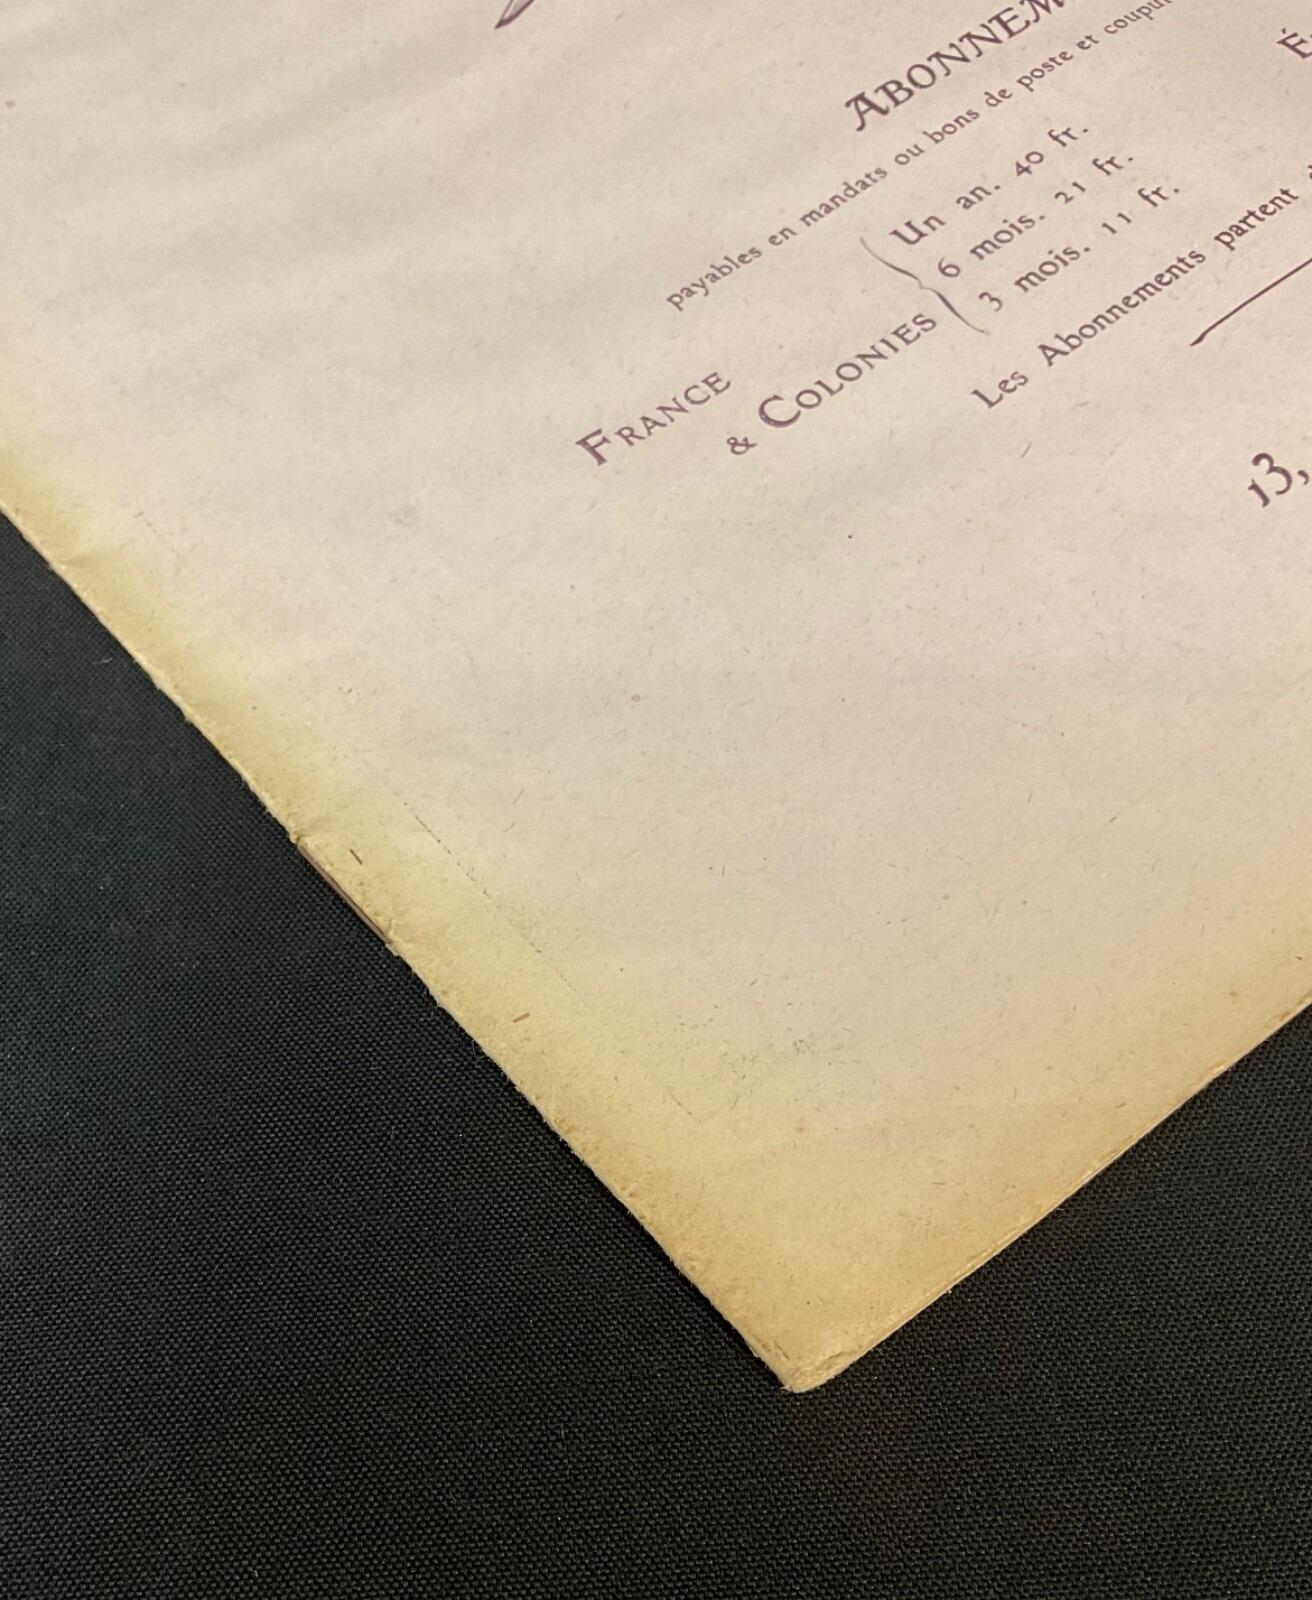 ABONNEM
payables en mandats ou bons de poste et
FRANCE
& COLONIES
Un an. 40 fr.
6 mois. 21 fr.
3 mois. 11 fr.
Les Abonnements partent
13,